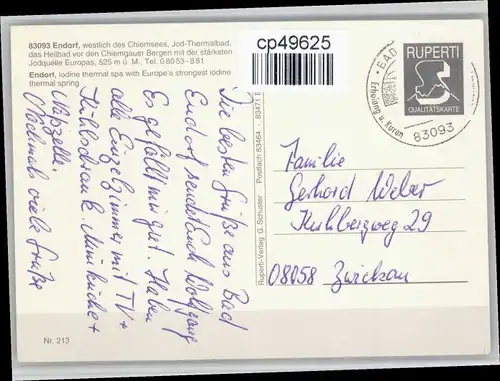 83093 Endorf, westlich des Chiemsees, Jod-Thermalbad,
das Heilbad vor den Chiemgauer Bergen mit der stärksten
Jodquelle Europas, 525 m ü. M., Tel. 0 80 53 - 8 81
Endorf, iodine thermal spa with Europe's strongest iodine
thermal spring
cp49625
RUPERTI
QUALITÄTSKARTE
BAD
Erholung u. Kuren
83093
Die besten Grüße aus Bad
Endorf sendet Euch Wolfgang
Es gefällt mir gut. Haben
alle Einzelzimmer mit TV +
Kühlschrank. Miniküche +
Naßzelle.
Nochmals viele Grüße
Ruperti-Verlag G. Schuster Postfach 83464 - 83471
Familie
Gerhard Weber
Kuhbergweg 29
08058 Zwickau
Nr. 213